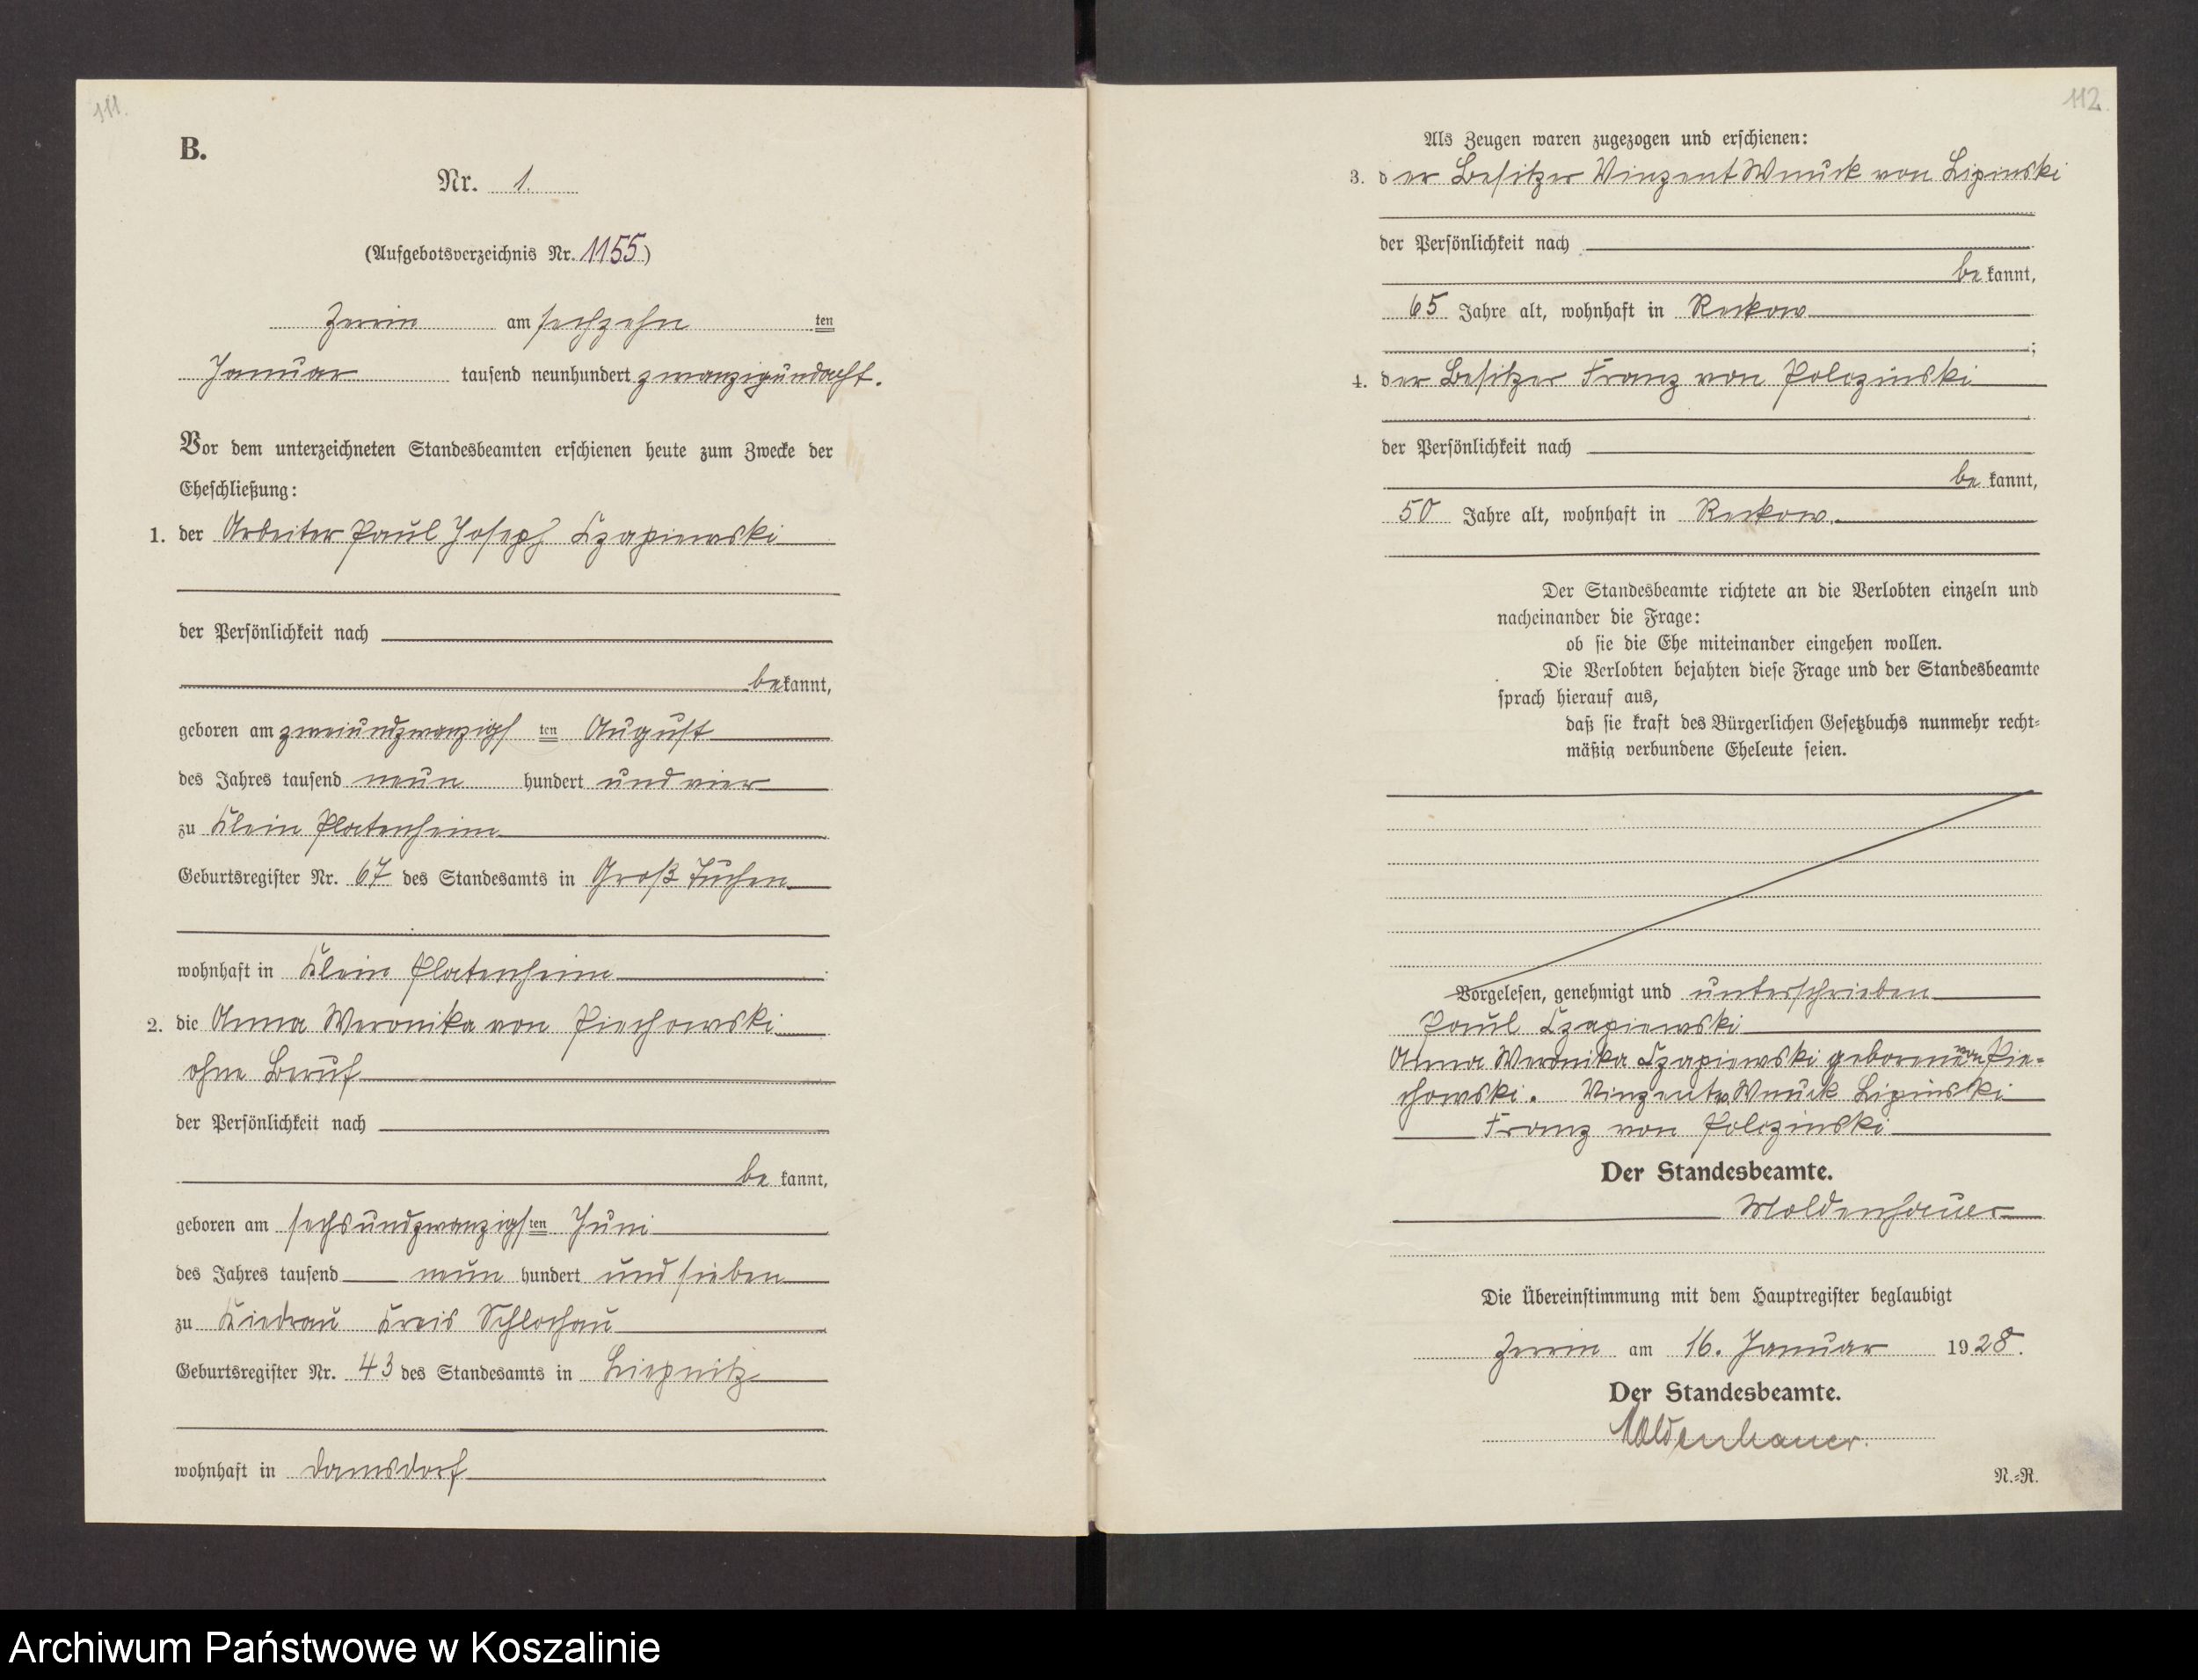 111.
B.
Nr. 1.
(Aufgebotsverzeichnis Nr. 1155)
Zerrin am sechzehn ten
Januar tausend neunhundert zwanzigundacht.
Vor dem unterzeichneten Standesbeamten erschienen heute zum Zwecke der
Eheschließung:
1. der Arbeiter Paul Joseph Czapiewski
der Persönlichkeit nach
bekannt,
geboren am zweiundzwanzigs ten August
des Jahres tausend neun hundert und vier
zu Klein Platenheim
Geburtsregister Nr. 67 des Standesamts in Groß Tuchen
wohnhaft in Klein Platenheim
2. die Anna Weronika von Piechowski
ohne Beruf
der Persönlichkeit nach
be kannt,
geboren am sechsundzwanzigs ten Juni
des Jahres tausend neun hundert und sieben
zu Kiedrau Kreis Schlochau
Geburtsregister Nr. 43 des Standesamts in Liepnitz
wohnhaft in Damsdorf
112.
Als Zeugen waren zugezogen und erschienen:
3. der Besitzer Vinzent Wnuck von Lipinski
der Persönlichkeit nach
be kannt,
65 Jahre alt, wohnhaft in Reckow
;
4. der Besitzer Franz von Polczinski
der Persönlichkeit nach
be kannt,
50 Jahre alt, wohnhaft in Reckow.
Der Standesbeamte richtete an die Verlobten einzeln und
nacheinander die Frage:
ob sie die Ehe miteinander eingehen wollen.
Die Verlobten bejahten diese Frage und der Standesbeamte
sprach hierauf aus,
daß sie kraft des Bürgerlichen Gesetzbuchs nunmehr recht-
mäßig verbundene Eheleute seien.
Vorgelesen, genehmigt und unterschrieben
Paul Czapiewski
Anna Weronika Czapiewski geborene von Pie-
chowski. Vinzent v. Wnuck Lipinski
Franz von Polczinski
Der Standesbeamte.
Moldenhauer
Die Übereinstimmung mit dem Hauptregister beglaubigt
Zerrin am 16. Januar 1928.
Der Standesbeamte.
Moldenhauer.
N.-R.
Archiwum Państwowe w Koszalinie